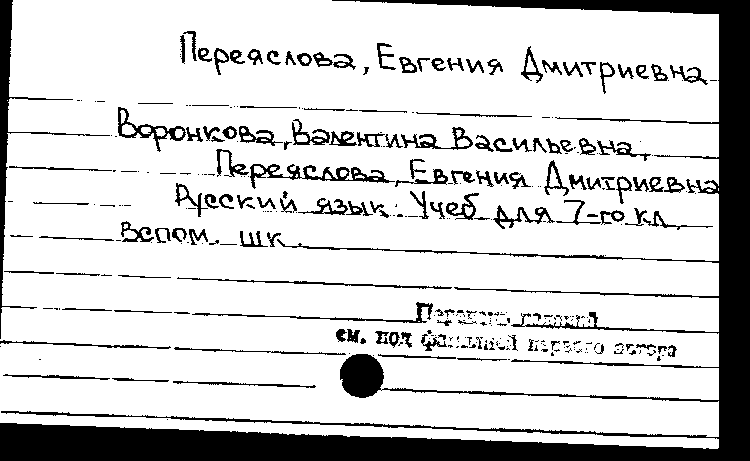 Переяслова, Евгения Дмитриевна
Воронкова, Валентина Васильевна,
Переяслова, Евгения Дмитриевна
Русский язык: Учеб для 7-го кл.
Вспом. шк.
Перечень изданий
см. под фамилией первого автора